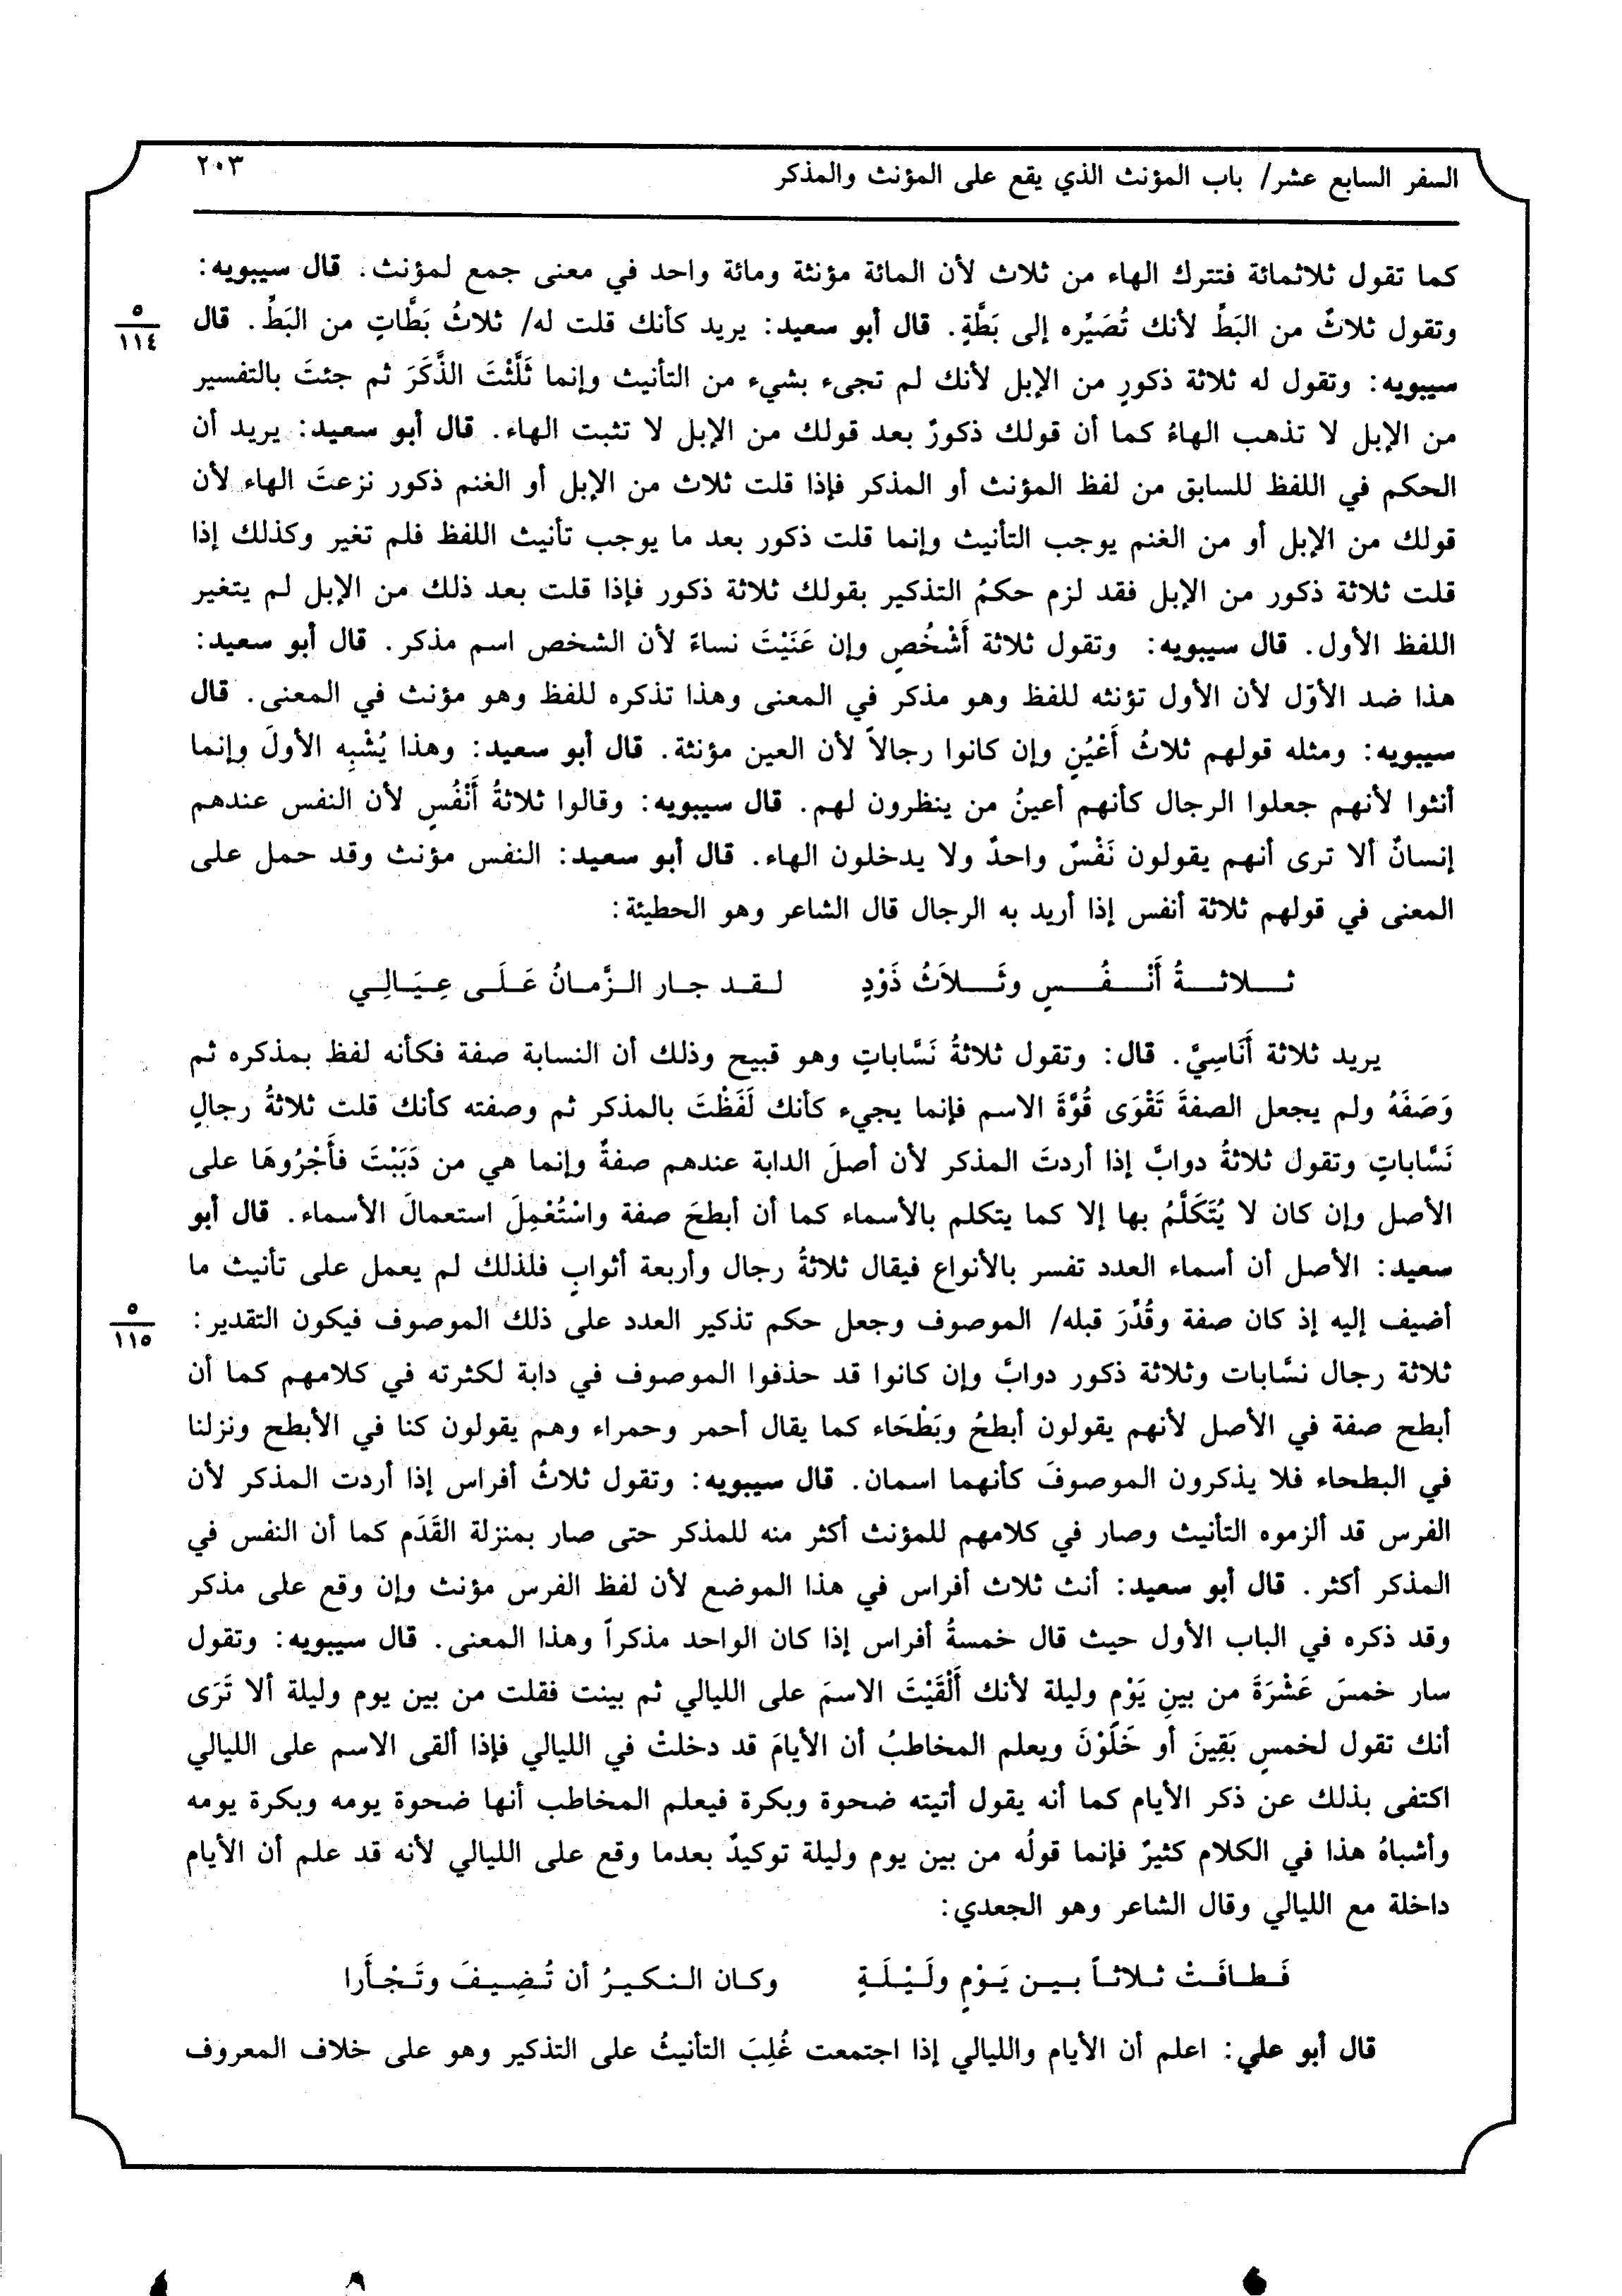 السفر السابع عشر/ باب المؤنث الذي يقع على المؤنث والمذكر
٢٠٣
كما تقول ثلاثمائة فتترك الهاء من ثلاث لأن المائة مؤنثة ومائة واحد في معنى جمع لمؤنث. قال سيبويه:
وتقول ثلاثٌ من البَطِّ لأنك تُصَيِّره إلى بَطَّةٍ. قال أبو سعيد: يريد كأنك قلت له/ ثلاثُ بَطَّاتٍ من البَطِّ. قال
٥
١١٤
سيبويه: وتقول له ثلاثة ذكورٍ من الإبل لأنك لم تجىء بشيء من التأنيث وإنما ثَلَّثْتَ الذَّكَرَ ثم جئتَ بالتفسير
من الإبل لا تذهب الهاءُ كما أن قولك ذكورٌ بعد قولك من الإبل لا تثبت الهاء. قال أبو سعيد: يريد أن
الحكم في اللفظ للسابق من لفظ المؤنث أو المذكر فإذا قلت ثلاث من الإبل أو الغنم ذكور نزعتَ الهاء لأن
قولك من الإبل أو من الغنم يوجب التأنيث وإنما قلت ذكور بعد ما يوجب تأنيث اللفظ فلم تغير وكذلك إذا
قلت ثلاثة ذكور من الإبل فقد لزم حكمُ التذكير بقولك ثلاثة ذكور فإذا قلت بعد ذلك من الإبل لم يتغير
اللفظ الأول. قال سيبويه: وتقول ثلاثة أَشْخُصٍ وإن عَنَيْتَ نساءً لأن الشخص اسم مذكر. قال أبو سعيد:
هذا ضد الأوّل لأن الأول تؤنثه للفظ وهو مذكر في المعنى وهذا تذكره للفظ وهو مؤنث في المعنى. قال
سيبويه: ومثله قولهم ثلاثُ أَعْيُنٍ وإن كانوا رجالاً لأن العين مؤنثة. قال أبو سعيد: وهذا يُشْبِه الأولَ وإنما
أنثوا لأنهم جعلوا الرجال كأنهم أعينُ من ينظرون لهم. قال سيبويه: وقالوا ثلاثةُ أَنْفُسٍ لأن النفس عندهم
إنسانٌ ألا ترى أنهم يقولون نَفْسٌ واحدٌ ولا يدخلون الهاء. قال أبو سعيد: النفس مؤنث وقد حمل على
المعنى في قولهم ثلاثة أنفس إذا أريد به الرجال قال الشاعر وهو الحطيئة:
ثـلاثـةُ أَنْـفُـسٍ وثَـلاَثُ ذَوْدٍ لـقـد جـار الـزَّمـانُ عَـلَـى عِـيَـالِـي
يريد ثلاثة أَنَاسِيَّ. قال: وتقول ثلاثةُ نَسَّاباتٍ وهو قبيح وذلك أن النسابة صفة فكأنه لفظ بمذكره ثم
وَصَفَهُ ولم يجعل الصفةَ تَقْوَى قُوَّةَ الاسم فإنما يجيء كأنك لَفَظْتَ بالمذكر ثم وصفته كأنك قلت ثلاثةُ رجالٍ
نَسَّاباتٍ وتقول ثلاثةُ دوابَّ إذا أردتَ المذكر لأن أصلَ الدابة عندهم صفةٌ وإنما هي من دَبَبْتَ فأَجْرُوهَا على
الأصل وإن كان لا يُتَكَلَّمُ بها إلا كما يتكلم بالأسماء كما أن أبطحَ صفة واسْتُعْمِلَ استعمالَ الأسماء. قال أبو
سعيد: الأصل أن أسماء العدد تفسر بالأنواع فيقال ثلاثةُ رجال وأربعة أثوابٍ فلذلك لم يعمل على تأنيث ما
أضيف إليه إذ كان صفة وقُدِّرَ قبله/ الموصوف وجعل حكم تذكير العدد على ذلك الموصوف فيكون التقدير:
٥
١١٥
ثلاثة رجال نسَّابات وثلاثة ذكور دوابَّ وإن كانوا قد حذفوا الموصوف في دابة لكثرته في كلامهم كما أن
أبطح صفة في الأصل لأنهم يقولون أبطحُ وبَطْحَاء كما يقال أحمر وحمراء وهم يقولون كنا في الأبطح ونزلنا
في البطحاء فلا يذكرون الموصوفَ كأنهما اسمان. قال سيبويه: وتقول ثلاثُ أفراس إذا أردت المذكر لأن
الفرس قد ألزموه التأنيث وصار في كلامهم للمؤنث أكثر منه للمذكر حتى صار بمنزلة القَدَم كما أن النفس في
المذكر أكثر. قال أبو سعيد: أنث ثلاث أفراس في هذا الموضع لأن لفظ الفرس مؤنث وإن وقع على مذكر
وقد ذكره في الباب الأول حيث قال خمسةُ أفراس إذا كان الواحد مذكراً وهذا المعنى. قال سيبويه: وتقول
سار خمسَ عَشْرَةَ من بينِ يَوْمٍ وليلة لأنك أَلْقَيْتَ الاسمَ على الليالي ثم بينت فقلت من بين يوم وليلة ألا تَرَى
أنك تقول لخمسٍ بَقِينَ أو خَلَوْنَ ويعلم المخاطبُ أن الأيامَ قد دخلتْ في الليالي فإذا ألقى الاسم على الليالي
اكتفى بذلك عن ذكر الأيام كما أنه يقول أتيته ضحوة وبكرة فيعلم المخاطب أنها ضحوة يومه وبكرة يومه
وأشباهُ هذا في الكلام كثيرٌ فإنما قولُه من بين يوم وليلة توكيدٌ بعدما وقع على الليالي لأنه قد علم أن الأيام
داخلة مع الليالي وقال الشاعر وهو الجعدي:
فَـطـافَـتْ ثـلاثـاً بـيـن يَـوْمٍ ولَـيْـلَـةٍ وكـان الـنـكـيـرُ أن تُـضِـيـفَ وتَـجْـأَرا
قال أبو علي: اعلم أن الأيام والليالي إذا اجتمعت غُلِبَ التأنيثُ على التذكير وهو على خلاف المعروف